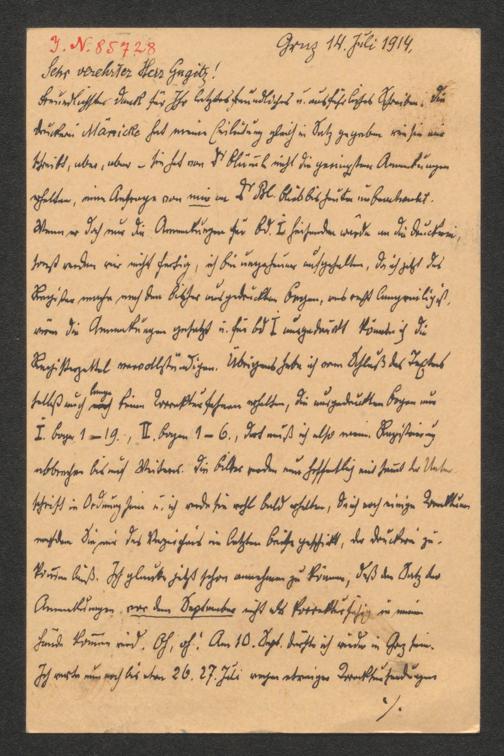 I. N. 85728
Graz 14. Juli 1914.
Sehr verehrter Herr Gugitz!
Freundlichsten Dank für Ihr letztes freundliches u. ausführliches Schreiben. Die
Druckerei Mänicke hat meine Einleitung gleich in Satz gegeben wie sie mir
schreibt, aber, aber – sie hat von Dr Blümml nicht die geringsten Anmerkungen
erhalten, eine Anfrage von mir an Dr Bl. blieb bis heute unbeantwortet.
Wenn er doch nur die Anmerkungen für Bd. I senden würde an die Druckerei,
sonst werden wir nicht fertig, ich bin ungeheuer aufgehalten, da ich jetzt das
Register mache nach den bisher ausgedruckten Bogen, was recht langweilig ist,
wären die Anmerkungen gesetzt u. für Bd I ausgedruckt könnte ich die
Registerzettel vervollständigen. Übrigens habe ich vom Schluß des Textes
selbst auch lange keine Korrekturfahnen erhalten, die ausgedruckten Bogen nur
I. Bogen 1–19., II. Bogen 1–6., dort muß ich also meine Registrierung
abbrechen bis auf Weiteres. Die Bilder werden nun hoffentlich mit samt der Unter
schrift in Ordnung sein u. ich werde sie wohl bald erhalten, da ich noch einige
nachdem Sie mir das Verzeichnis im letzten Briefe geschickt, der Druckerei zu-
kommen ließ. Ich glaube jetzt schon annehmen zu können, daß der Satz der
Anmerkungen vor dem September nicht als Korrektur in meine
Hände kommen wird. Oh, oh! Am 10. Sept. dürfte ich wieder in Graz sein.
Ich warte nun noch bis etwa 26. 27. Juli wegen etwaiger Korrektursendungen
./.